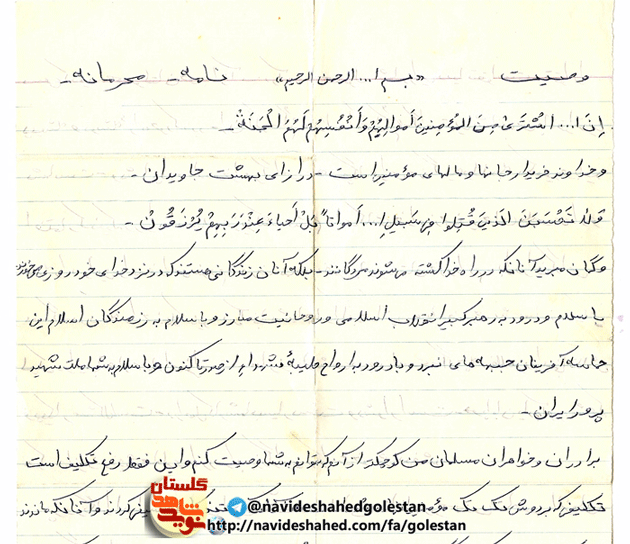 وصیت «بسم ا... الرحمن الرحیم» نامه - محرمانه -
اِنَّ ا... اشْتَریٰ مِنَ المُؤمِنینَ اَموالِهِمْ وَ اَنْفُسِهِمْ لَهُمُ الْجَنَّةْ -
و خداوند خریدار جانها و مالهای مؤمنین است - در ازای بهشت جاویدان -
وَلا تَحْسَبَنَ الَذینَ قُتِلوا فی سَبیلِ ا... اَمواتاً بَلْ اَحیاءٌ عِنْدَ رَبِهِمْ یُرْزَقُونْ -
و گمان مبرید آنانکه در راه خدا کشته میشوند مردگانند - بلکه آنان زندگانی هستند که در نزد خدای خود روزی
با سلام و درود به رهبر کبیر انقلاب اسلامی و روحانیت مبارز و با سلام به رزمندگان اسلام این
حماسه آفرینان جبهه های نبرد و با درود به ارواح طیبهٔ شهدا از صدر تا کنون و با سلام به شما ملت شهید
پرور ایران -
برادران و خواهران مسلمان من کوچکتر از آنم که بتوانم به شما وصیت کنم و این فقط رفع تکلیف است
تکلیفی که بر دوش تک تک و آنانکه ماندند
گلستان
نوید شاهد
@navideshahedgolestan
http://navideshahed.com/fa/golestan